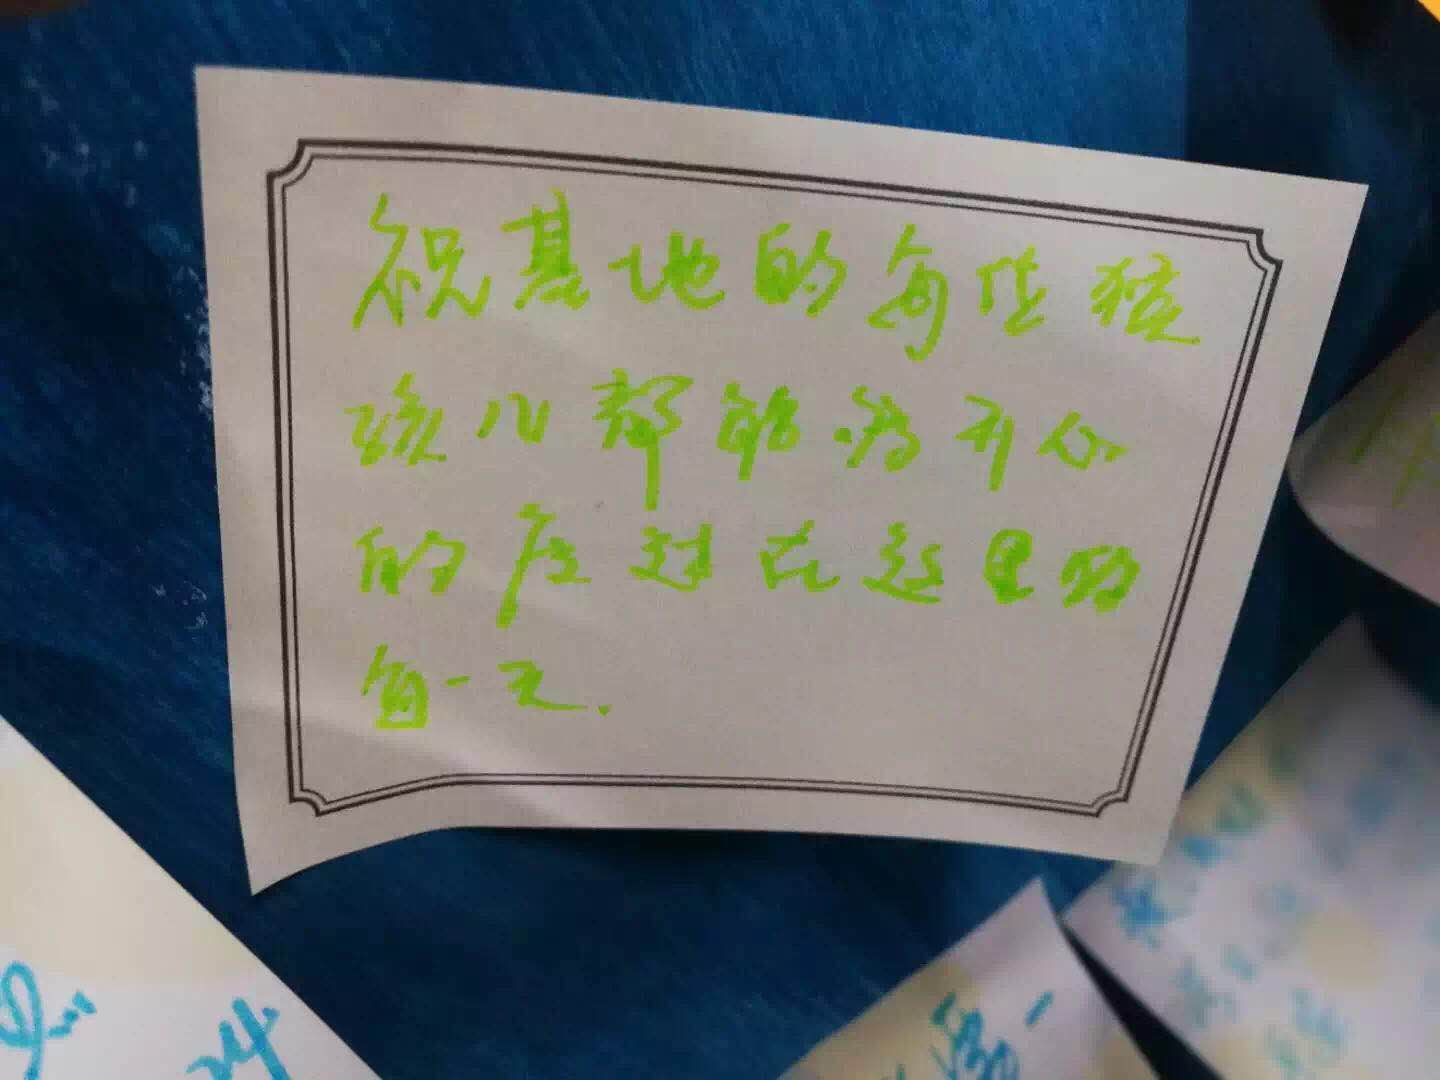 祝基地的每位孩
孩儿都能够开心
的度过在这里的
每一天.